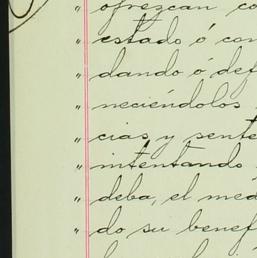 ofrezcan co
" estado ó con
" dando ó def
" neciéndolos
" cias y sente
" intentando
" deba, el med
" do su benef